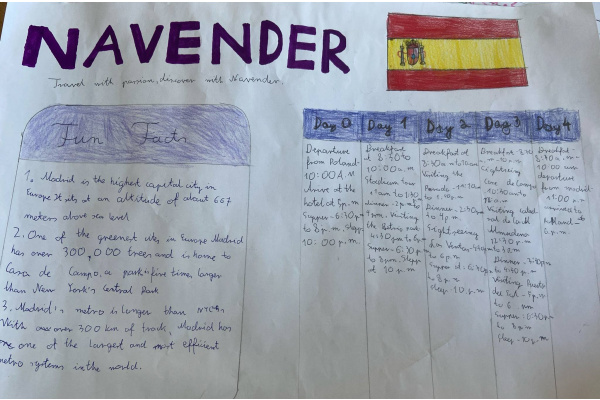 NAVENDER
Travel with passion, discover with Navender.
Fun Facts
1. Madrid is the highest capital city in
Europe. It sits at an altitude of about 667
meters above sea level
2. One of the greenest cities in Europe Madrid
has over 300,000 trees and is home to
Casa de Campo, a park five times larger
than New York's Central Park
3. Madrid's metro is longer than NYC's
With over 300 km of track, Madrid has
one of the largest and most efficient
metro systems in the world.
Day 0
Departure
from Poland-
10:00 A.M
Arrive at the
hotel at 5p.m.
Supper - 6:30p.m
to 8 p.m, Sleep
10:00 p.m.
Day 1
Breakfast
at 8:30 to
10:00 a.m.
Stadium tour
dinner - 2 p.m to
4 p.m. Visiting
the Retiro park
4:30 pm to 6 p.m
Supper - 6:30
to 8 p.m. Sleep
at 10 p.m
Day 2
Breakfast at
8:30 a.m to 10 a.m
Visiting the
Dinner - 2:30 p.m
to 4 p.m.
Sightseeing
to 6 p.m.
Supper at 6:30
to 8 p.m
Sleep - 10 p.m.
Day 3
Breakfast 8:30
Sightseeing
Visiting
Almudena
Dinner -
Visiting Puerta
del Sol - 5 p.m
to 6 pm
Supper - 6:30 p.m
to 8 p.m
Sleep - 10 p.m.
Day 4
Breakfast
8:30 a.m -
10:00 a.m
departure
from madrid